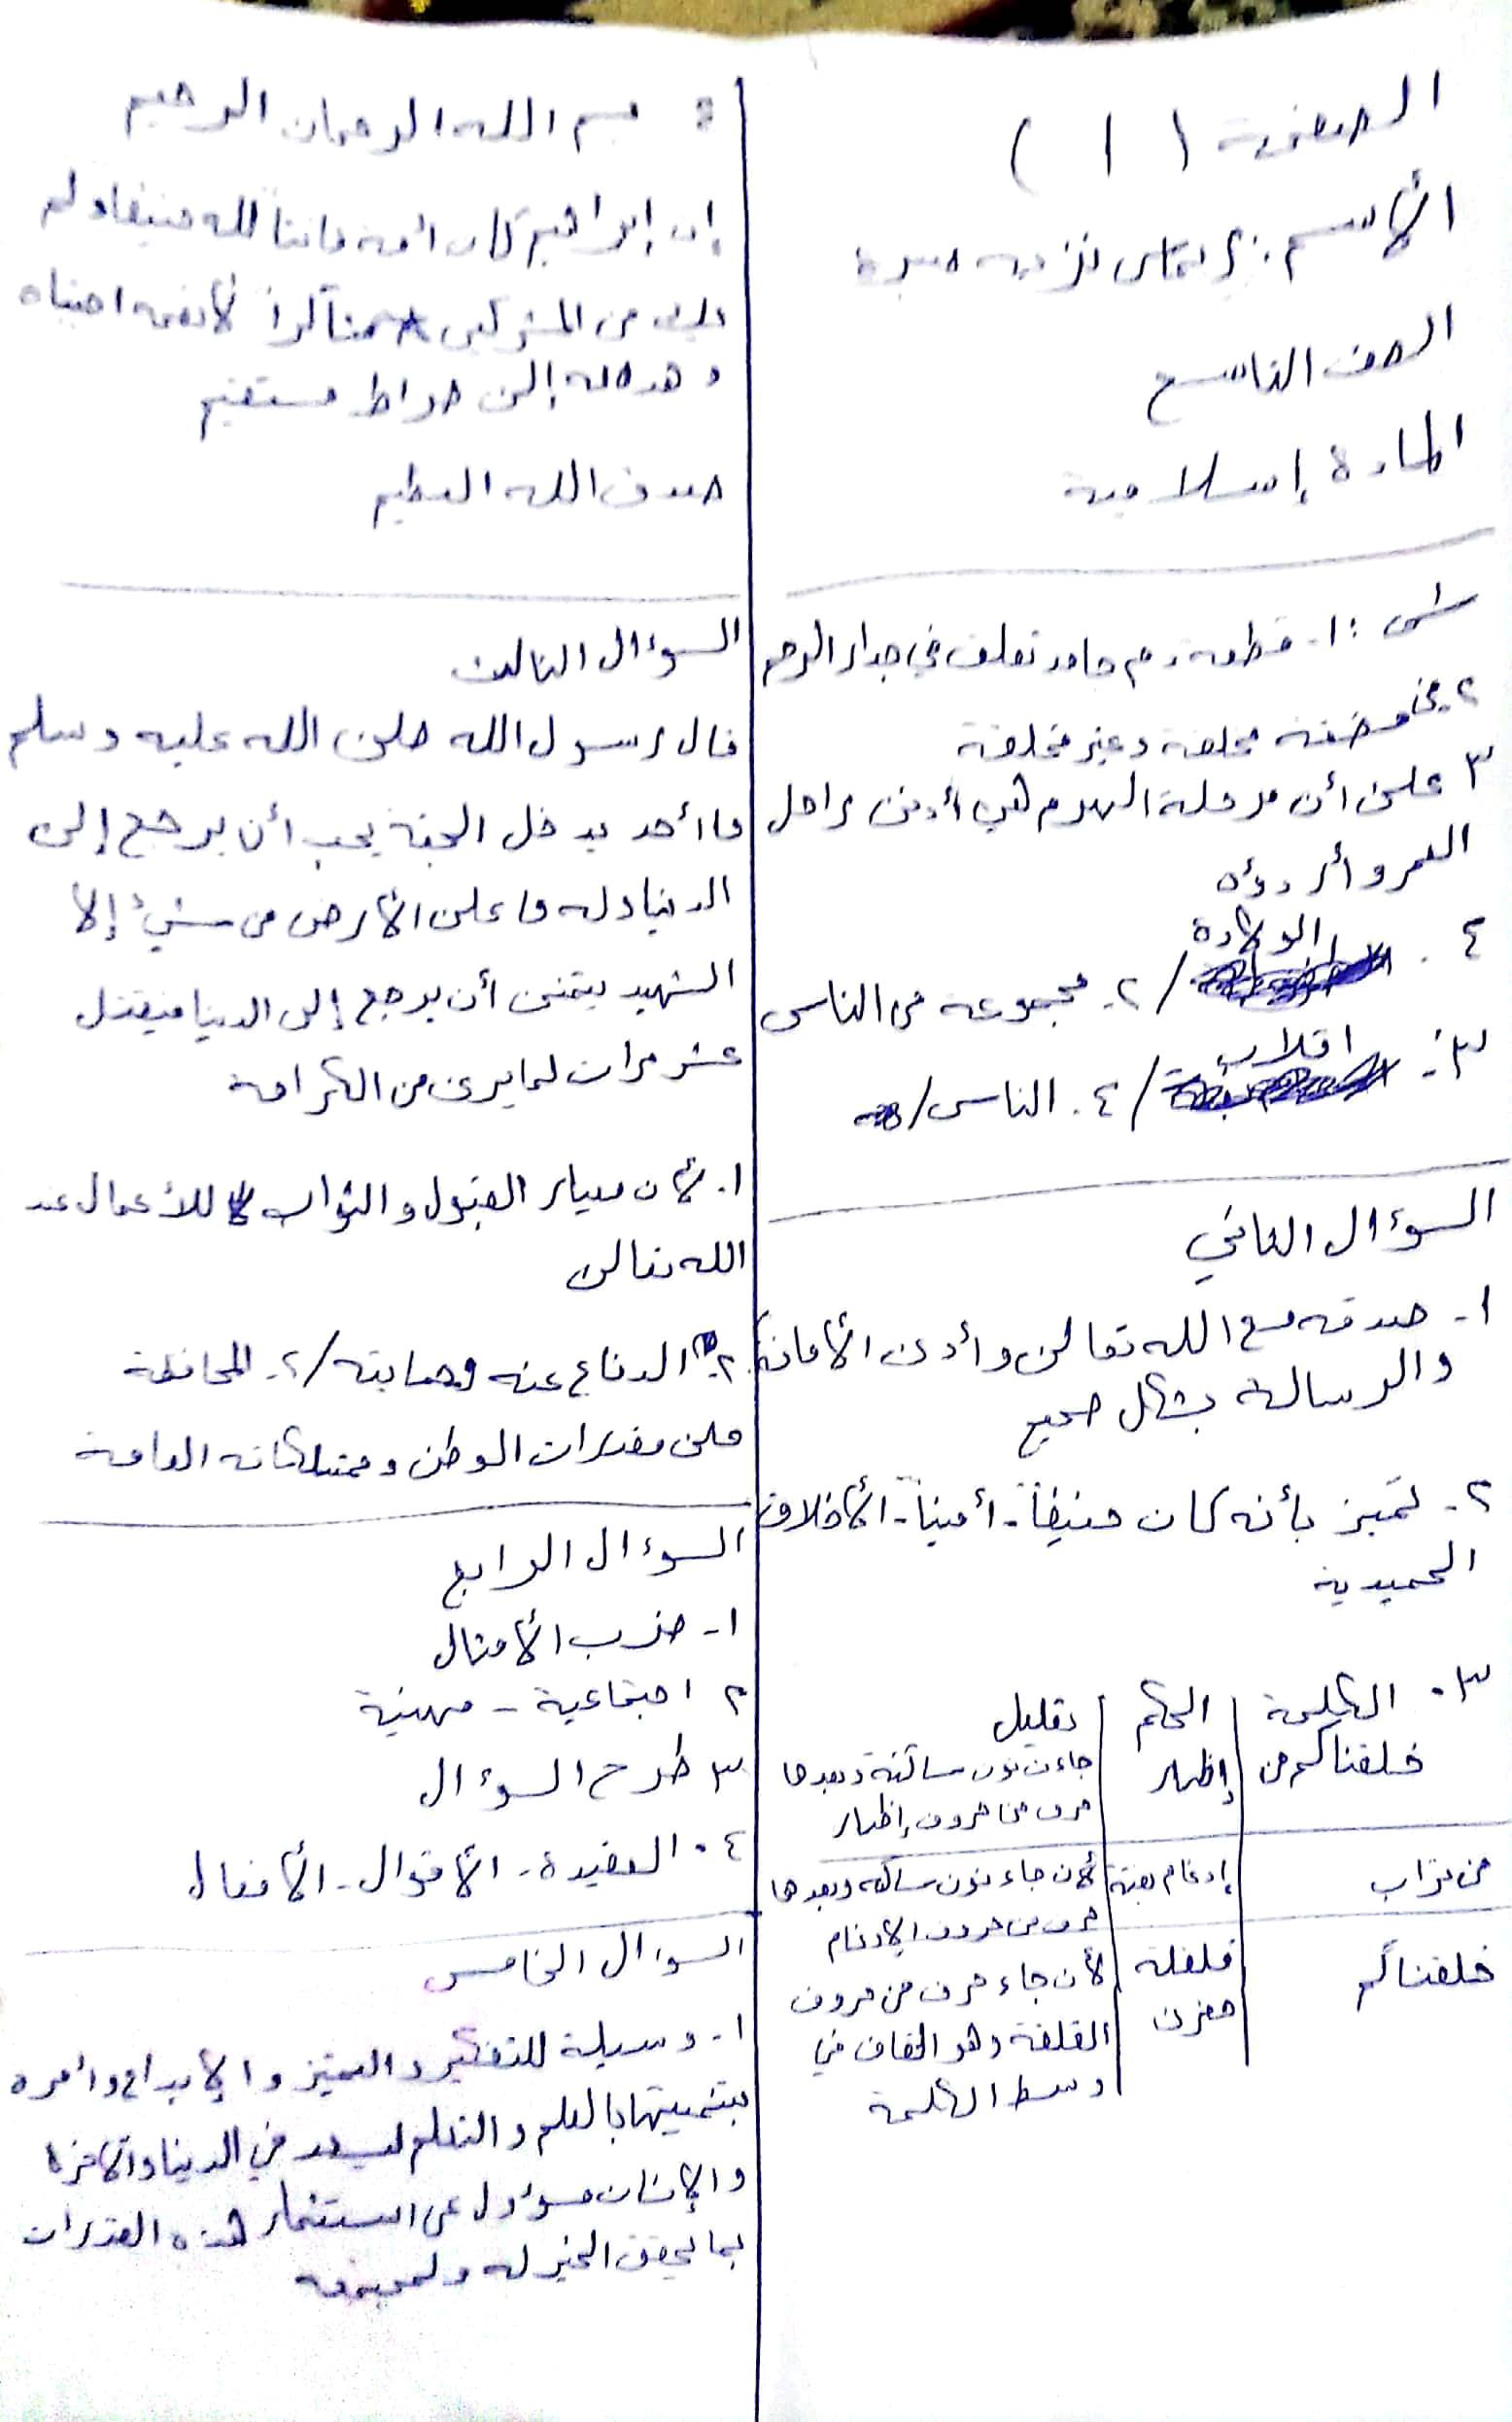 الصفحة ( ١ )
الأسم:
الصف التاسع
المادة إسلامية
س١: ١- قطعة دم جامد تعلق في جدار الرحم
٢ مضغة مخلقة وغير مخلقة
٣ على أن مرحلة الهرم هي أدنى مراحل
العمر وأردؤه
٤. الولادة / ٢- مجموعة من الناس
٣: اقلاب / ٤. الناس /
السوءال الثاني
١- صدقه مع الله تعالى وأدى الأمانة
والرسالة بشكل صحيح
٢- تميز بأنه كان حنيفاً - أميناً - الأخلاق
الحميدية
٣. الكلمة | الحكم | تعليل
خلقناكم من | إظهار | جاءت نون ساكنة وبعدها
حرف من حروف إظهار
من تراب | إدغام بغنة | لأن جاء نون ساكنه وبعدها
حرف من حروف الإدغام
خلقناكم | قلقلة | لأن جاء حرف من حروف
صغرى | القلقة وهو القاف في
وسط الكلمة
بسم الله الرحمان الرحيم
إن إبراهيم كان أمة قانتاً لله حنيفا ولم
يك من المشركين شاكراً لأنعمه اجتباه
وهداه إلى صراط مستقيم
صدق الله العظيم
السوءال الثالث
قال رسول الله صلى الله عليه وسلم
ما أحد يدخل الجنة يحب أن يرجع إلى
الدنيا وله ما على الأرض من شيء إلا
الشهيد يتمنى أن يرجع إلى الدنيا فيقتل
عشر مرات لما يرى من الكرامة
١- لأن معيار القبول والثواب للأعمال عند
الله تعالى
٢. الدفاع عنه وحمايته / ٢- المحافظة
على مقدرات الوطن وممتلكاته العامة
السوءال الرابع
١- ضرب الأمثال
٢ اجتماعية - مهنية
٣ طرح السوءال
٤. العقيدة - الأقوال - الأفعال
السوءال الخامس
١- وسيلة للتفكير والتميز والإبداع وأمره
بتنميتها بالعلم والتعلم ليسعد في الدنيا والآخرة
والإنسان مسؤول عن استثمار هذه القدرات
بما يحقق الخير له ولمجتمعه